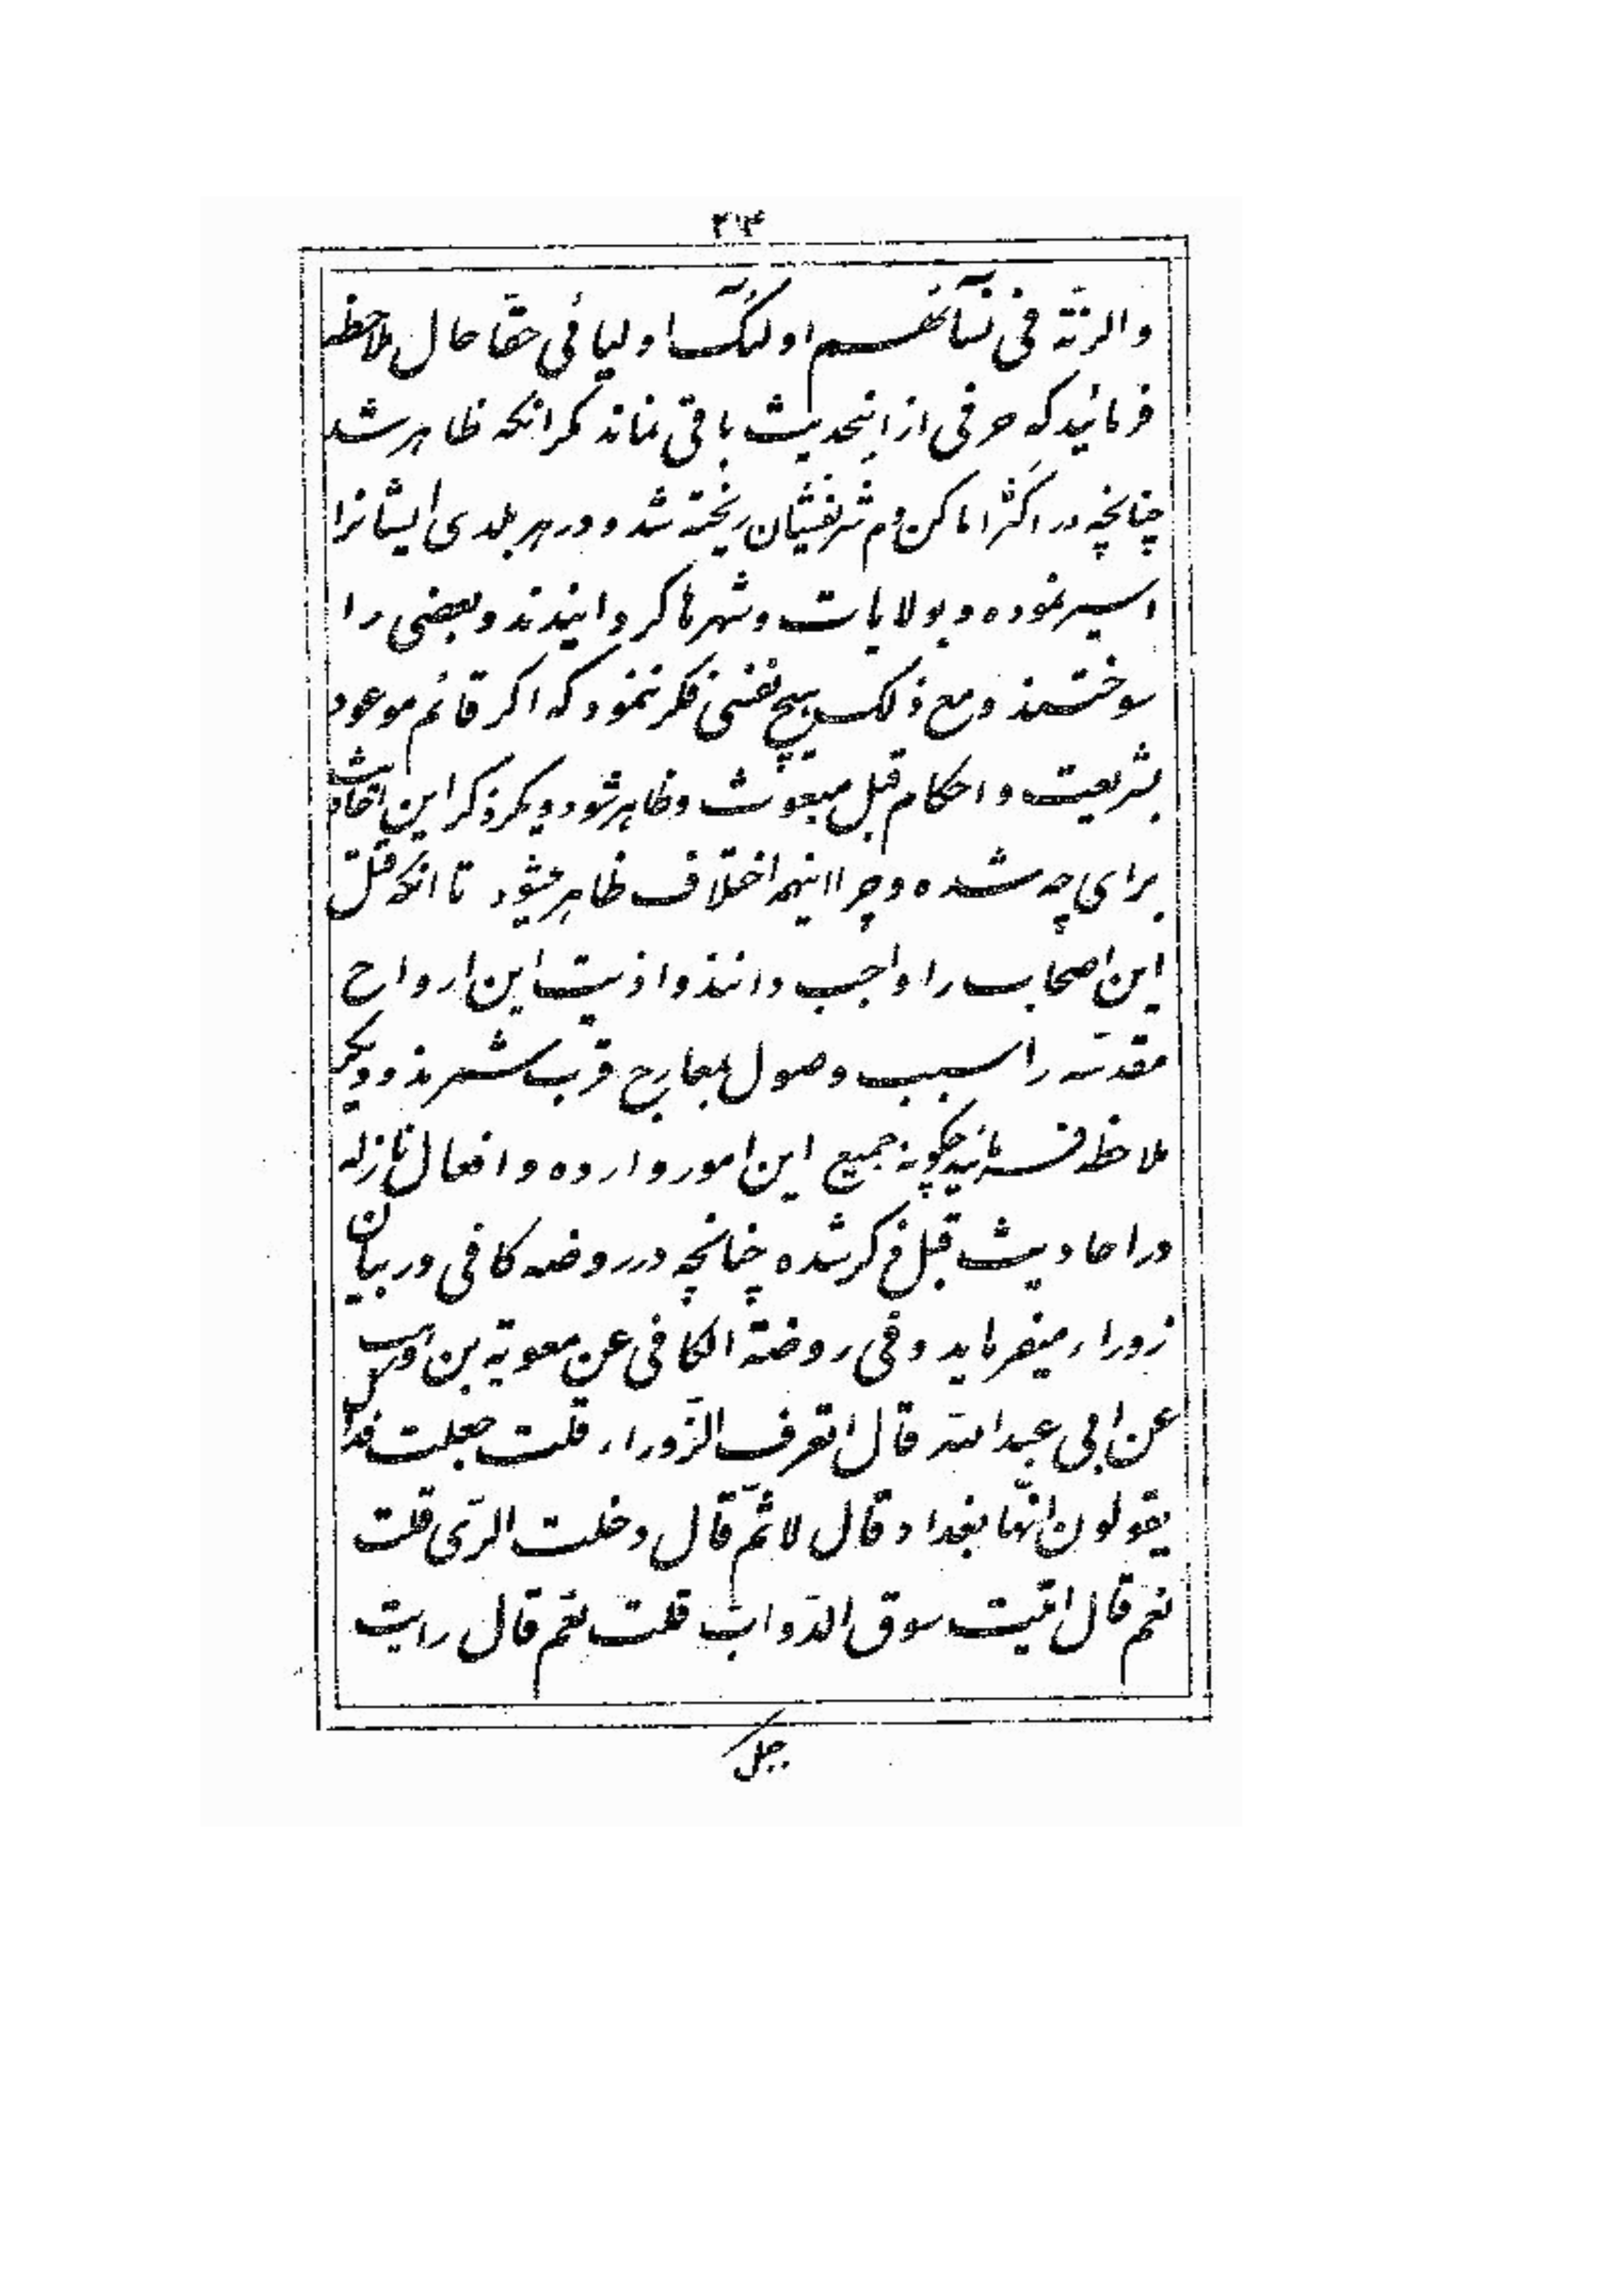 والرنّة فی نسآئهم اولئک اولیائی حقّا حال ملاحظه
فرمائید که حرفی از اینحدیث باقی نماند مکر انکه ظاهر شد
چنانچه در اکثر اماکن دم شریفشان ریخته شد و در هر بلدی ایشانرا
اسیر نموده و بولایات و شهرها کردانیدند و بعضی را
سوختند و مع ذلک هیچ نفسی فکر ننمود که اکر قائم موعود
بشریعت و احکام قبل مبعوث و ظاهر شود دیکر ذکر این احادیث
برای چه شده و چرا اینهمه اختلاف ظاهر میشود تا انکه قتل
این اصحاب را واجب دانند و اذیت این ارواح
مقدسه را سبب وصول بمعارج قرب شمرند و دیکر
ملاحظه فرمائید چکونه جمیع این امور وارده و افعال نازله
در احادیث قبل ذکر شده چنانچه در روضه کافی در بیان
زوراء میفرماید و فی روضة الکافی عن معویة بن وهب
عن ابی عبدالله قال اتعرف الزّوراء قلت جعلت فداک
یقولون انّها بغداد قال لا ثمّ قال دخلت الرّی قلت
نعم قال اتیت سوق الدّوابّ قلت نعم قال رایت
جبل